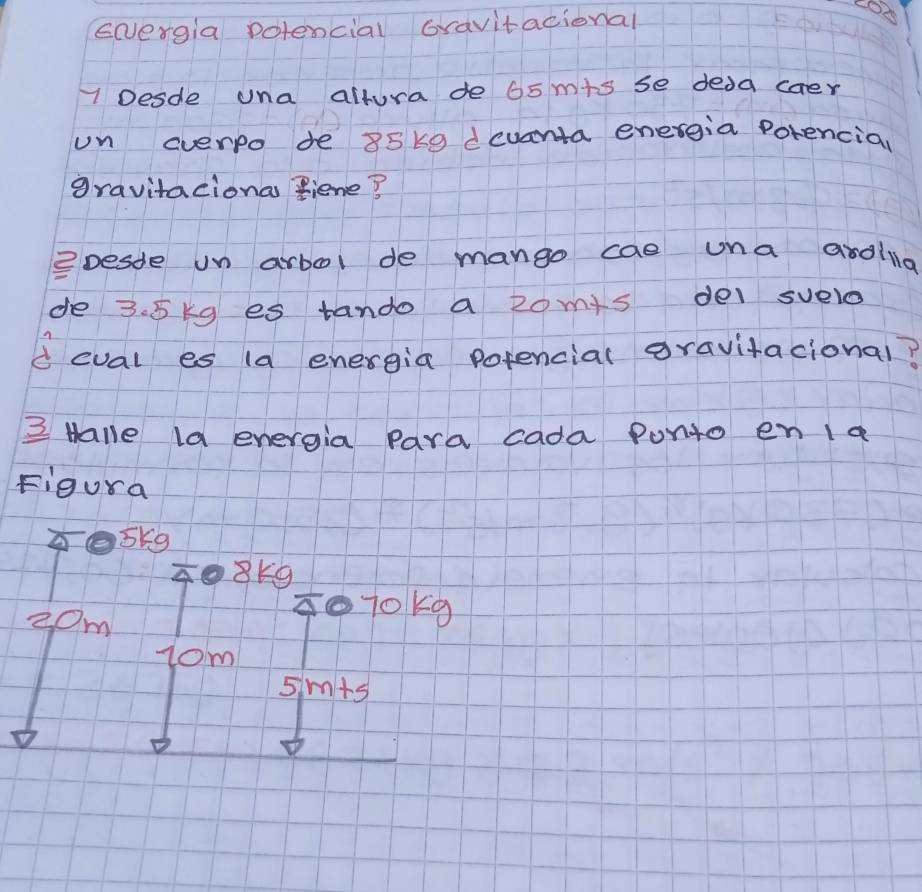 Energia Potencial Gravitacional
1 Desde una altura de 65 mts se deja caer
un cuerpo de 85 kg ¿cuanta energia Potencial
gravitaciona tiene?
2 Desde un arbol de mango cae una ardilla
de 3.5 kg es tando a 20 mts del suelo
¿cual es la energia Potencial gravitacional?
3 Halle la energia Para cada Punto en la
Figura
5kg
8kg
10 kg
20m
10m
5 mts